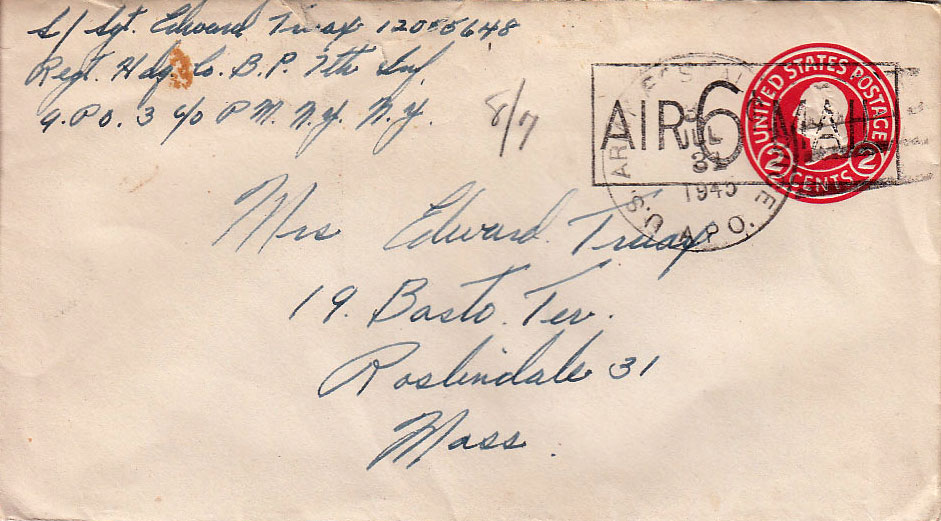 S/Sgt. Edward Truax 12055648
Regt. Hdq. Co. B.P. 7th Inf.
A.P.O. 3 c/o P.M. N.Y. N.Y.
8/7
AIR 6¢ MAIL
UNITED STATES POSTAGE
2 CENTS 2
JUL
1945
U.S. A.P.O.
Mrs Edward Truax
19. Basto. Ter.
Roslindale 31
Mass.